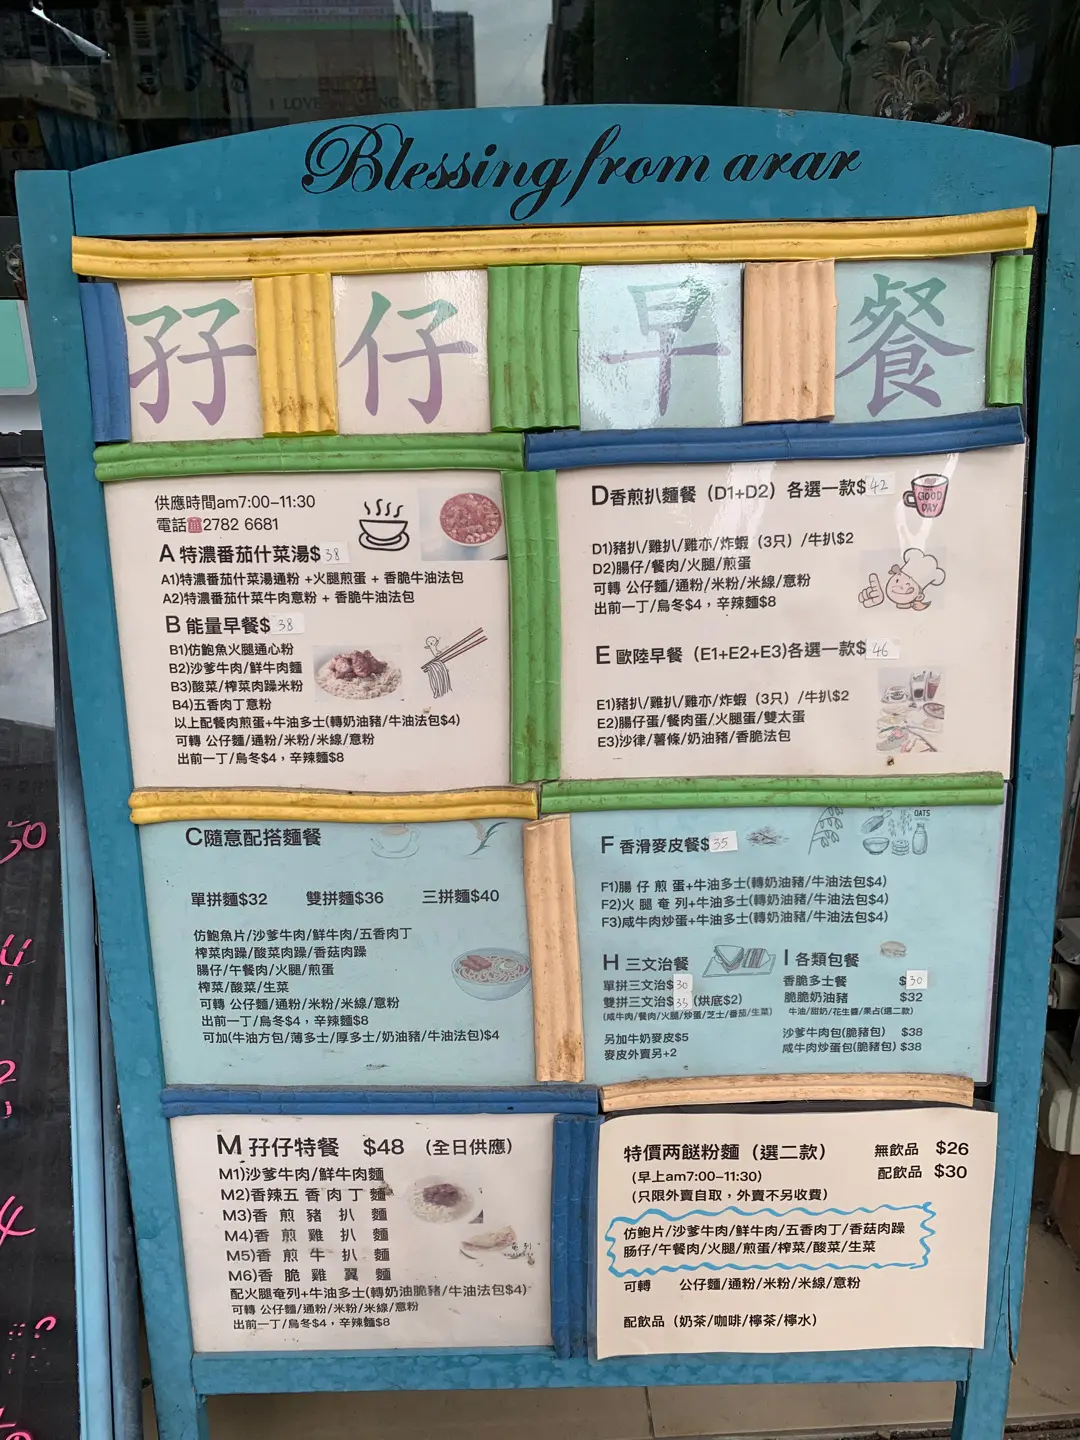 I LOVE
Blessing from arar
孖仔早餐
供應時間am7:00-11:30
電話☎2782 6681
A 特濃番茄什菜湯$38
A1)特濃番茄什菜湯通粉 +火腿煎蛋 + 香脆牛油法包
A2)特濃番茄什菜牛肉意粉 + 香脆牛油法包
B 能量早餐$38
B1)仿鮑魚火腿通心粉
B2)沙爹牛肉/鮮牛肉麵
B3)酸菜/榨菜肉躁米粉
B4)五香肉丁意粉
以上配餐肉煎蛋+牛油多士(轉奶油豬/牛油法包$4)
可轉 公仔麵/通粉/米粉/米線/意粉
出前一丁/烏冬$4，辛辣麵$8
D香煎扒麵餐（D1+D2）各選一款$42
GOOD DAY
D1)豬扒/雞扒/雞亦/炸蝦（3只）/牛扒$2
D2)腸仔/餐肉/火腿/煎蛋
可轉 公仔麵/通粉/米粉/米線/意粉
出前一丁/烏冬$4，辛辣麵$8
E 歐陸早餐（E1+E2+E3)各選一款$46
E1)豬扒/雞扒/雞亦/炸蝦（3只）/牛扒$2
E2)腸仔蛋/餐肉蛋/火腿蛋/雙太蛋
E3)沙律/薯條/奶油豬/香脆法包
C隨意配搭麵餐
單拼麵$32 雙拼麵$36 三拼麵$40
仿鮑魚片/沙爹牛肉/鮮牛肉/五香肉丁
榨菜肉躁/酸菜肉躁/香菇肉躁
腸仔/午餐肉/火腿/煎蛋
榨菜/酸菜/生菜
可轉 公仔麵/通粉/米粉/米線/意粉
出前一丁/烏冬$4，辛辣麵$8
可加(牛油方包/薄多士/厚多士/奶油豬/牛油法包)$4
F 香滑麥皮餐$35
OATS
F1)腸 仔 煎 蛋+牛油多士(轉奶油豬/牛油法包$4)
F2)火 腿 奄 列+牛油多士(轉奶油豬/牛油法包$4)
F3)咸牛肉炒蛋+牛油多士(轉奶油豬/牛油法包$4)
H 三文治餐
單拼三文治$30
雙拼三文治$35 (烘底$2)
(咸牛肉/餐肉/火腿/炒蛋/芝士/番茄/生菜)
另加牛奶麥皮$5
麥皮外賣另+2
I 各類包餐
香脆多士餐 $30
脆脆奶油豬 $32
牛油/甜奶/花生醬/果占(選二款)
沙爹牛肉包(脆豬包) $38
咸牛肉炒蛋包(脆豬包) $38
M 孖仔特餐 $48 （全日供應）
M1)沙爹牛肉/鮮牛肉麵
M2)香辣五 香 肉 丁 麵
M3)香 煎 豬 扒 麵
M4)香 煎 雞 扒 麵
M5)香 煎 牛 扒 麵
M6)香 脆 雞 翼 麵
配火腿奄列+牛油多士(轉奶油脆豬/牛油法包$4)
可轉 公仔麵/通粉/米粉/米線/意粉
出前一丁/烏冬$4，辛辣麵$8
特價两餸粉麵（選二款） 無飲品 $26
（早上am7:00-11:30） 配飲品 $30
（只限外賣自取，外賣不另收費）
仿鮑片/沙爹牛肉/鮮牛肉/五香肉丁/香菇肉躁
肠仔/午餐肉/火腿/煎蛋/榨菜/酸菜/生菜
可轉 公仔麵/通粉/米粉/米線/意粉
配飲品（奶茶/咖啡/檸茶/檸水）